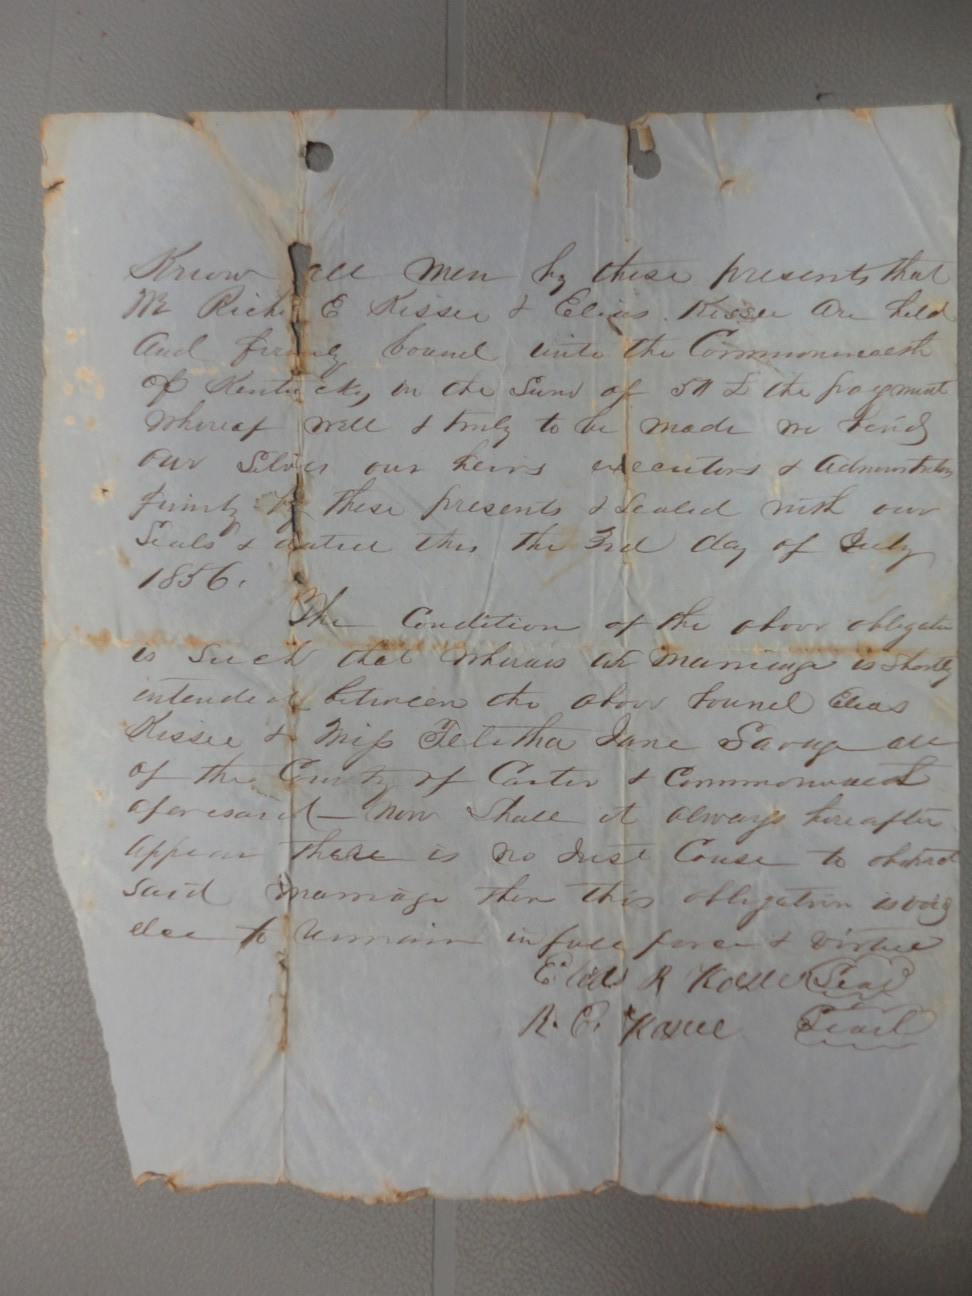 Know all men by these presents that
We Richd E Kissee & Elias Kissee are held
and firmly bound unto the Commonwealth
of Kentucky in the Sum of 50 £ the payment
whereof well & truly to be made we bind
our Selves our heirs executors & administrators
firmly by these presents & Sealed with our
Seals & dated this the 3rd day of July
1856.
The Condition of the above obligation
is Such that whereas a marriage is Shortly
intended between the above bound Elias
Kissee & Miss Telitha Jane Savage all
of the County of Carter & Commonwealth
aforesaid — now Shall it always hereafter
appear there is no Just Cause to obstruct
said marriage then this obligation is void
else to remain in full force & virtue
Elias R Kissee Seal
R. E. Kissee Seal